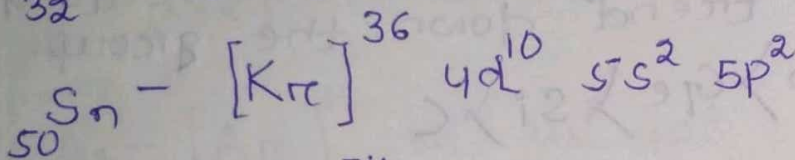 32
₅₀Sn - [Kr]³⁶ 4d¹⁰ 5s² 5p²